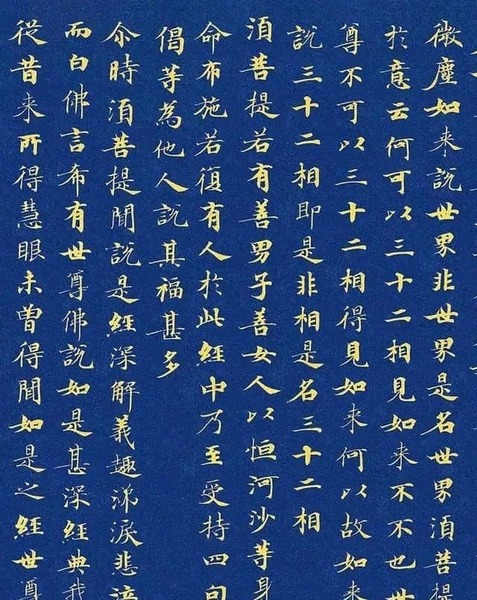 微塵如来說世界非世界是名世界湏菩提
於意云何可以三十二相見如来不不也世
尊不可以三十二相得見如来何以故如来
說三十二相即是非相是名三十二相
湏菩提若有善男子善女人以恒河沙等身
命布施若復有人於此經中乃至受持四句
偈等為他人說其福甚多
尒時湏菩提聞說是經深解義趣涕淚悲泣
而白佛言希有世尊佛說如是甚深經典我
從昔来所得慧眼未曽得聞如是之經世尊